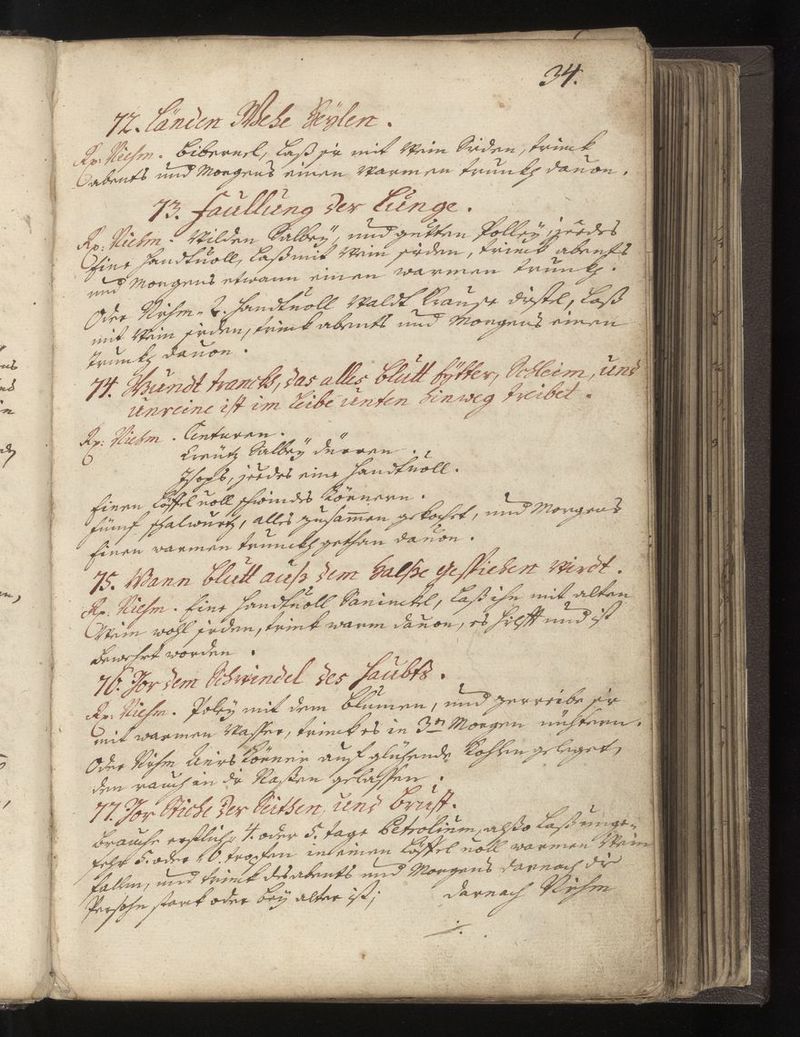 34.
72. Länden Wehe Heylen.
Rp: Niehm. Bibernel, laß sie mit Wein Sieden, trinck
abents und Morgens einen warmen trunckh davon.
73. Faullung der Lunge.
Rp: Niehm. Wilden Salbey, und gutten Polley, jeedes
Eine Handtvoll, laß mit Wein sieden, trinck abents
und Morgens etwann einen warmen trunckh.
Oder Niehm 2. Handtvoll Waldt Krause distel, laß
mit Wein sieden, trinck abents und Morgens einen
trunckh davon.
74. Wundt tranckh, das alles blutt Eÿtter, Schleim, und
unreine ist im Leibe unten hinweg treibet.
Rp: Niehm. Centuren.
Creütz Salbey dürren.
Ysops, jeedes eine Handtvoll.
Einen Löffel voll Körnern.
fünf alles zusammen gekochet, und Morgens
Einen warmen trunckh gethan davon.
75. Wann blutt auß dem Halße gestiehen wirdt.
Rp. Niehm. Eine Handtvoll Saninckel, laß ihn mit alten
Wein wohl sieden, trinck warm davon, es hilfft und ist
bewehrt worden.
76. Vor dem Schwindel des Haubts.
Rp. Niehm. Poley mit dem blumen, und zerreibe sie
mit warmen Wasser, trinck es in 3en Morgen nüchtern.
Oder Niehm Körner auf glühende Kohlen geleget,
den rauch in die Nassen gelassen.
77. Vor Stiche der Seithen, und brust.
brauche erstlich 4. oder 5. tage Petrolium, alßo laß unge-
fehr 5. oder 10. tropfen in einen Löffel voll warmen Wein
fallen, und trinck des abents und Morgens darnach die
Persohn starck oder bey alter ist; darnach Niehm